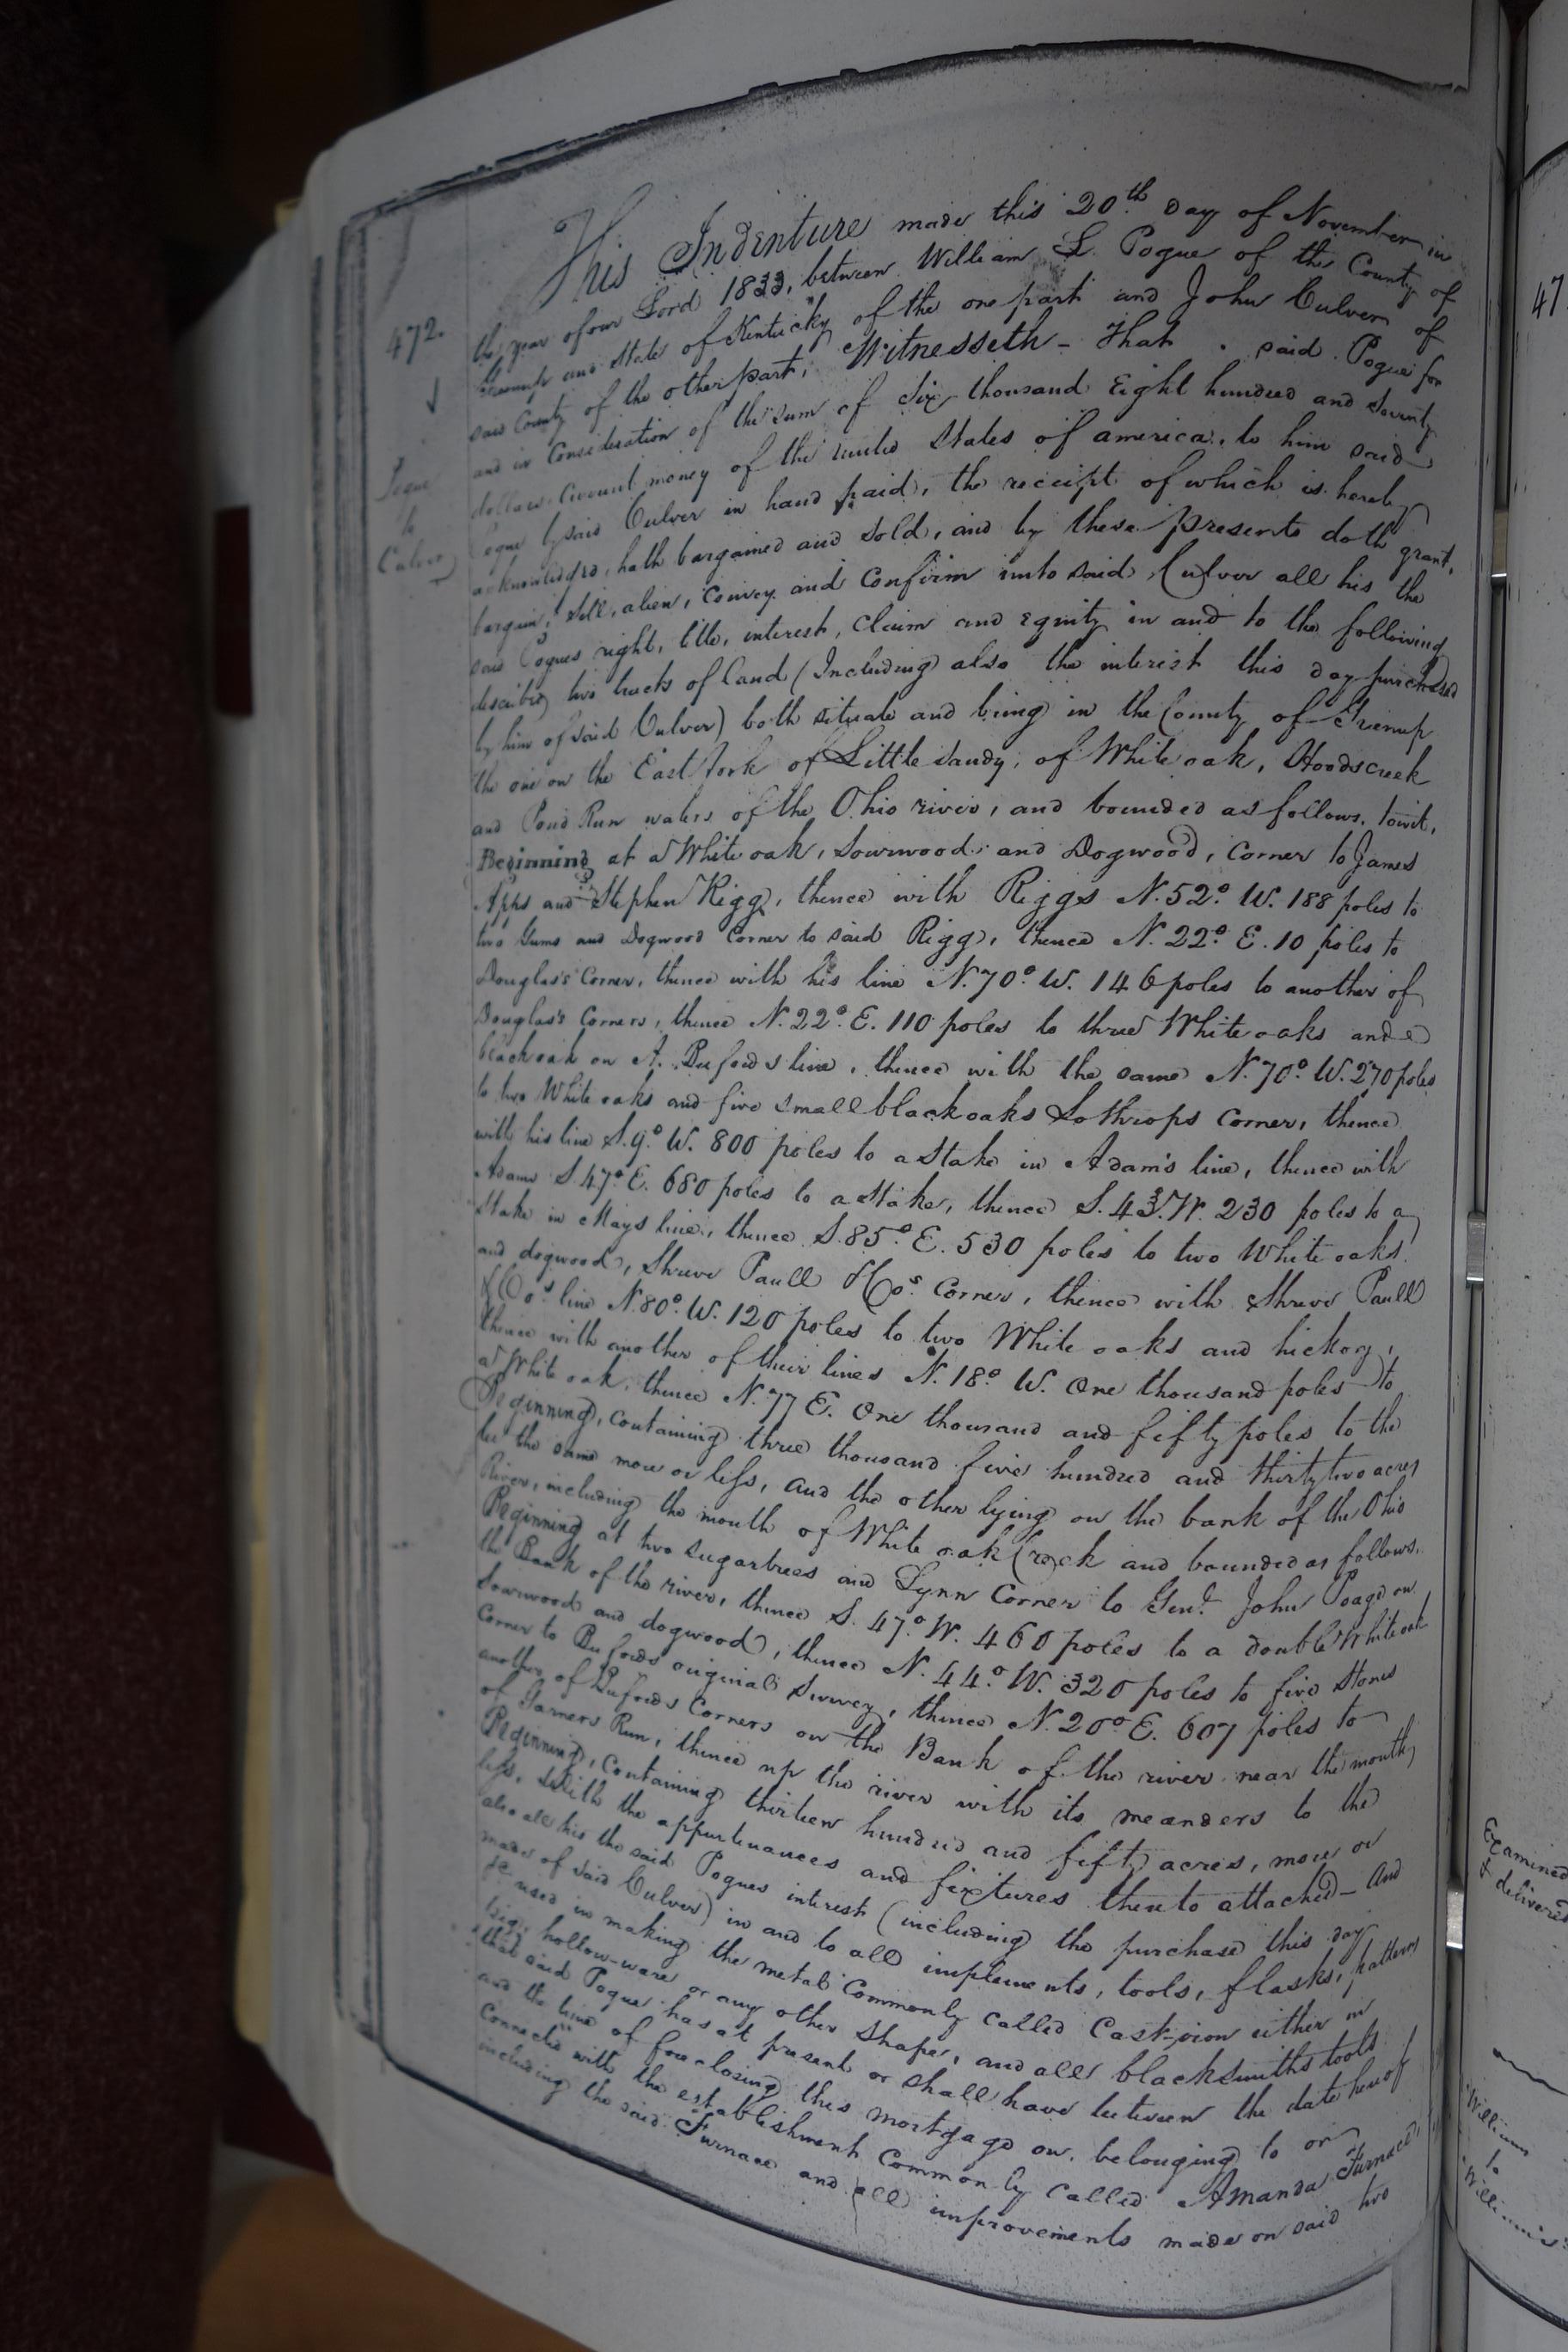 This Indenture made this 20th day of November in
the year of our Lord 1833, between William L. Pogue of the County of
Greenup and State of Kentucky of the one part and John Culver of
said County of the other part, Witnesseth - That said Pogue for
and in Consideration of the sum of Six thousand Eight hundred and Seventy
dollars Current money of the united States of america, to him said
Pogue by said Culver in hand paid, the receipt of which is hereby
acknowledged, hath bargained and Sold, and by these presents doth grant,
bargain, Sell, alien, Convey and Confirm unto said Culver all his the
said Pogues right, title, interest, claim and Equity in and to the following
described two tracts of land (Including also the interest this day purchased
by him of said Culver) both situate and being in the County of Greenup
the one on the East fork of Little Sandy, of White oak, Hoodscreek
and Pond Run waters of the Ohio river, and bounded as follows, towit,
Beginning at a White oak, Sourwood and Dogwood, corner to James
Apks and Stephen Rigg, thence with Riggs N. 52° W. 188 poles to
two Gums and Dogwood Corner to said Rigg, thence N. 22° E. 10 poles to
Douglass's Corner, thence with his line N. 70° W. 146 poles to another of
Douglas's Corners, thence N. 22° E. 110 poles to three White oaks and a
black oak on A. Bufords line, thence with the same N. 70° W. 270 poles
to two White oaks and five small black oaks Lothrops Corner, thence
with his line S. 9° W. 800 poles to a Stake in Adam's line, thence with
Adams S. 47° E. 680 poles to a Stake, thence S. 43° W. 230 poles to a
Stake in Mays line, thence S. 85° E. 530 poles to two White oaks
and dogwood, Shreve Paull & Cos. Corner, thence with Shreve Paull
& Cos. line N. 80° W. 120 poles to two White oaks and hickory,
thence with another of their lines N. 18° W. One thousand poles to
a White oak, thence N. 77 E. One thousand and fifty poles to the
Beginning, containing three thousand five hundred and thirty two acres
be the same more or less, and the other lying on the bank of the Ohio
River, including the mouth of White oak Creek and bounded as follows.
Beginning at two Sugartrees and Lynn Corner to Genl. John Poage on
the Bank of the river, thence S. 47° W. 460 poles to a double White oak
Sourwood and dogwood, thence N. 44° W. 320 poles to five Stones
Corner to Bufords original Survey, thence N. 20° E. 607 poles to
another of Bufords Corners on the Bank of the river near the mouth
of Garners Run, thence up the river with its meanders to the
Beginning, Containing thirteen hundred and fifty acres, more or
less, With the appurtenances and fixtures thereto attached - And
also all his the said Pogues interest (including the purchase this day
made of said Culver) in and to all implements, tools, flasks, patterns
&c used in making the metal Commonly called Cast-iron either in
pigs, hollow-ware or any other Shape, and all blacksmiths tools
that said Pogue has at present or shall have between the date hereof
and the time of foreclosing this mortgage on, belonging to or
Connected with the establishment Commonly called Amanda Furnace,
including the said Furnace and all improvements made on said two
472.
Pogue
to
Culver
47
Examined
& delivered
William
to
Williams